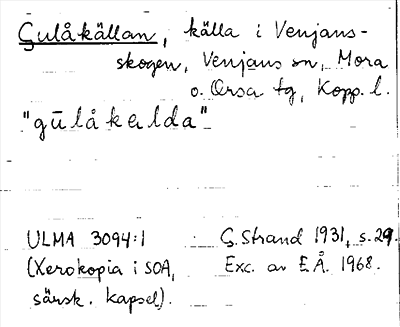 Gulåkällan, källa i Venjans-
skogen, Venjans sn, Mora
o. Orsa tg, Kopp. l.
"gūlåkälda"
ULMA 3094:1
(Xerokopia i SOA,
särsk. kapsel).
G. Strand 1931, s. 29.
Exc. av E.Å. 1968.